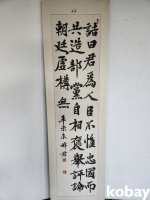 詰曰君為人臣不惟忠國而
共造部黨自相褒舉評論
朝廷虛構無
kobay